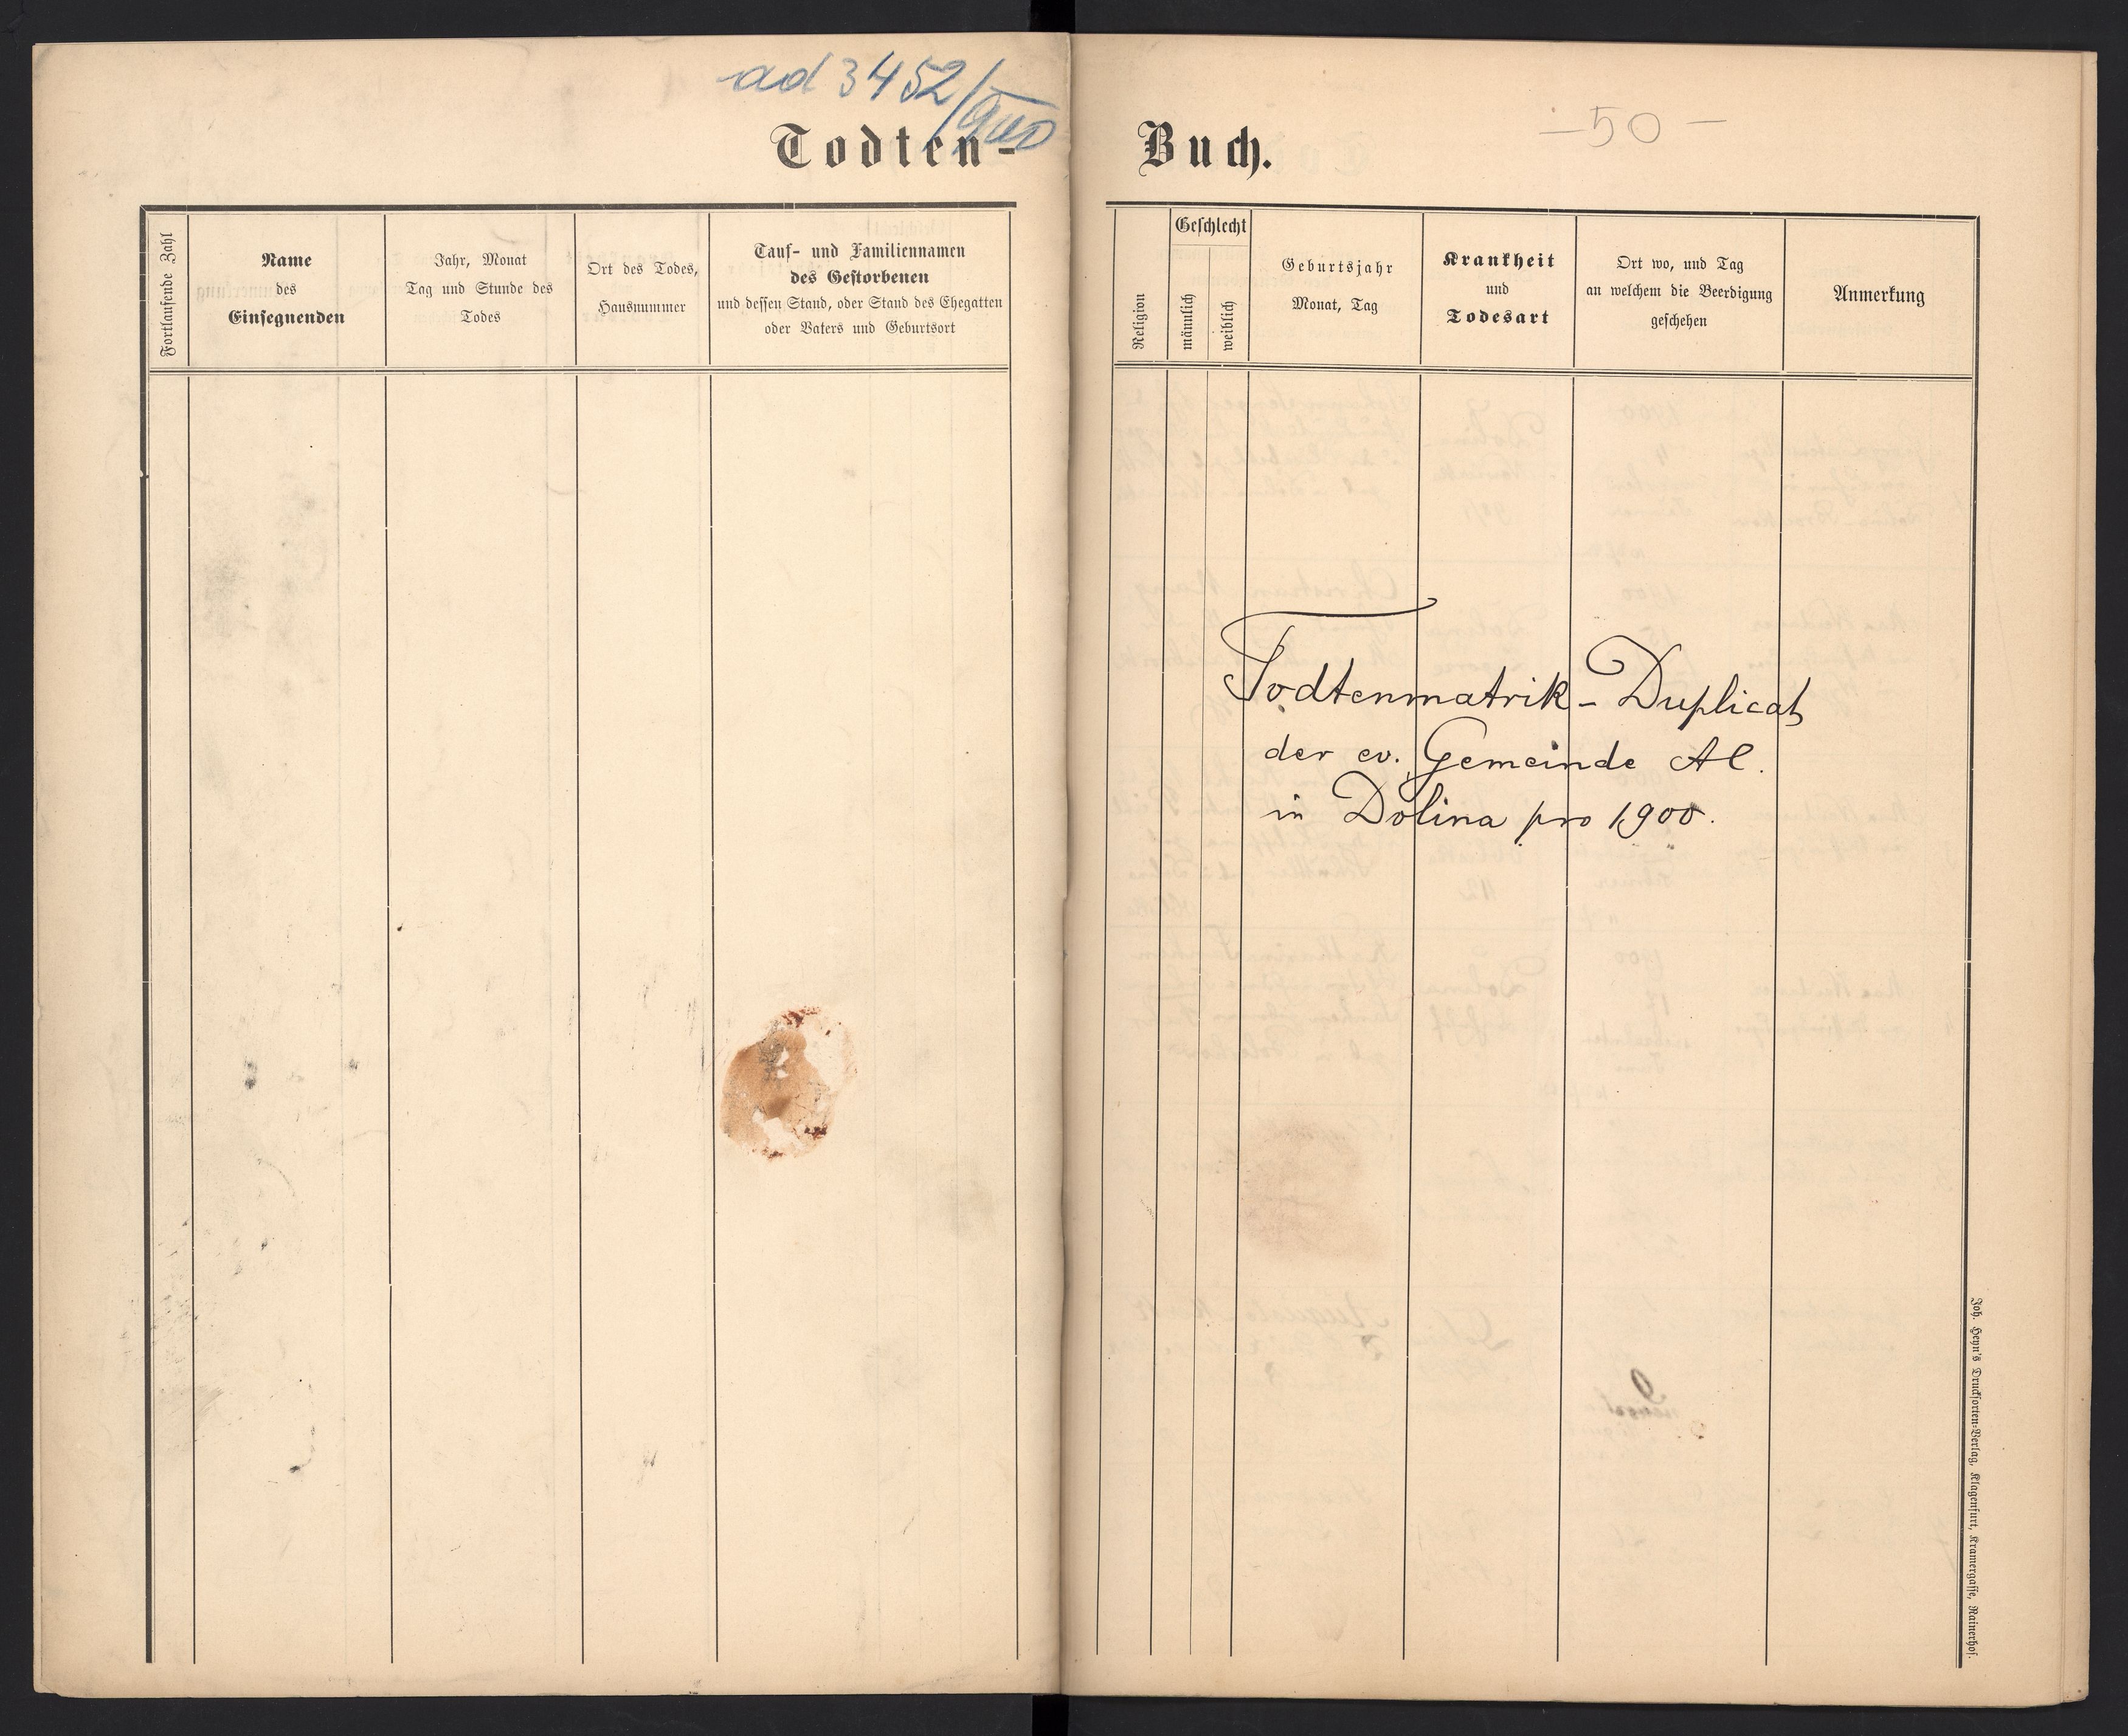 ad 3452/900
Todten-
Fortlaufende Zahl
Name
des
Einsegnenden
Jahr, Monat
Tag und Stunde des
Todes
Ort des Todes,
Hausnummer
Tauf- und Familiennamen
des Gestorbenen
und dessen Stand, oder Stand des Ehegatten
oder Vaters und Geburtsort
Buch.
-50-
Religion
Geschlecht
männlich
weiblich
Geburtsjahr
Monat, Tag
Krankheit
und
Todesart
Ort wo, und Tag
an welchem die Beerdigung
geschehen
Anmerkung
Todtenmatrik-Duplicat
der ev. Gemeinde AC.
in Dolina pro 1900.
Joh. Heyn's Drucksorten-Verlag, Klagenfurt, Kramergasse, Rainerhof.